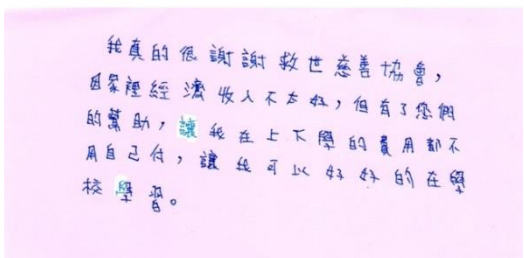 我真的很謝謝救世慈善協會，
因家裡經濟收入不太好，但有了您們
的幫助，讓我在上下學的費用都不
用自己付，讓我可以好好的在學
校學習。